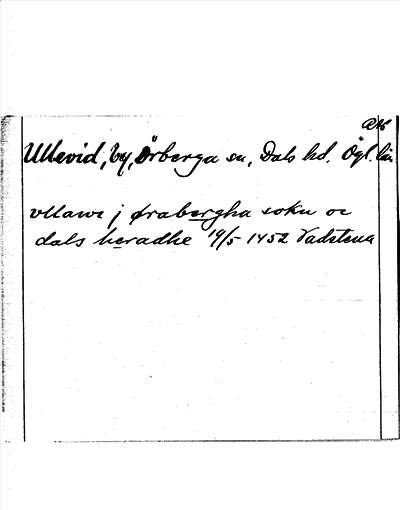 Ullevid, by, Örberga sn, Dals hd. Ögl. län
vllawi j ørabergha sokn oc
dals heradhe 19/5 1452 Vadstena